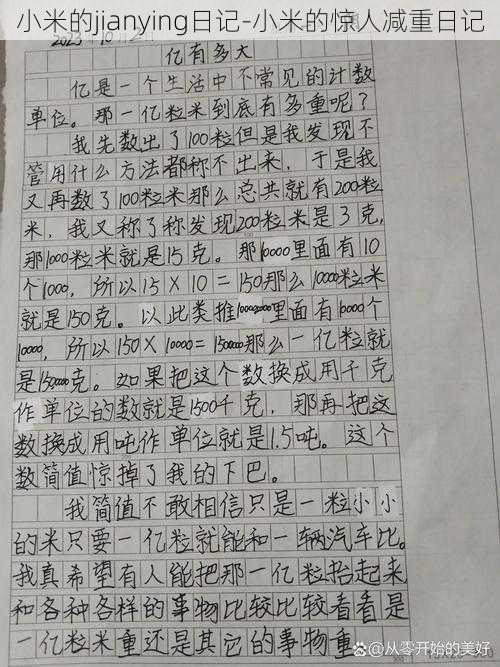 小米的jianying日记-小米的惊人减重日记
2023 10月2
亿有多大
亿是一个生活中不常见的计数
单位。那一亿粒米到底有多重呢？
我先数出了100粒但是我发现不
管用什么方法都称不出来，于是我
又再数了100粒米那么总共就有200粒
米，我又称了称发现200粒米是3克，
那1000粒米就是15克。那10000里面有10
个1000，所以15×10=150那么10000粒米
就是150克。以此类推100000000里面有10000个
10000，所以150×10000=1500000那么一亿粒就
是1500000克。如果把这个数换成用千克
作单位的数就是1500千克，那再把这
数换成用吨作单位就是1.5吨。这个
数简值惊掉了我的下巴。
我简值不敢相信只是一粒小小
的米只要一亿粒就能和一辆汽车比。
我真希望有人能把那一亿粒抬起来
和各种各样的事物比较比较看看是
一亿粒米重还是其它的事物重
@从零开始的美好